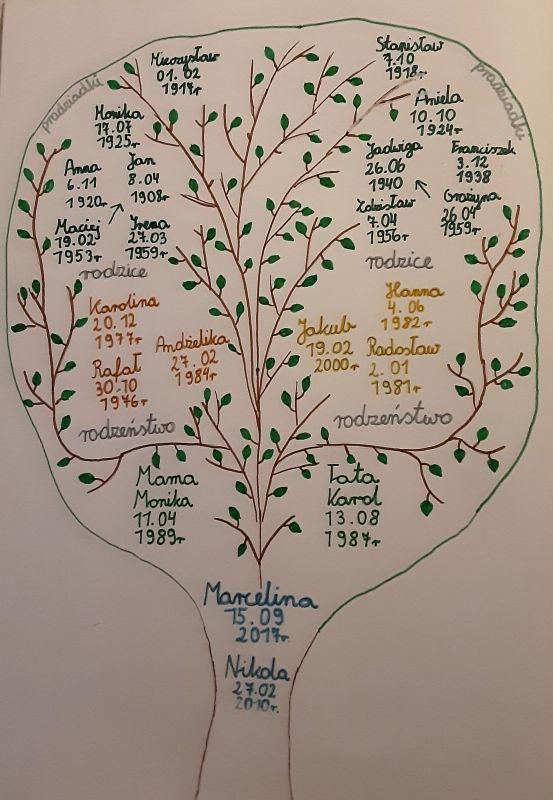 pradziadki
Mieczysław
01.02
1917r
Monika
17.07
1925r.
Anna
6.11
1920r
Jan
8.04
1908r
Maciej
19.02
1953r
Irena
27.03
1959r
rodzice
Karolina
20.12
1977r
Rafał
30.10
1976r
Andżelika
27.02
1984r
rodzeństwo
Mama
Monika
11.04
1989r
pradziadki
Stanisław
7.10
1918r
Aniela
10.10
1924r
Jadwiga
26.06
1940
Franciszek
3.12
1938
Zdzisław
7.04
1956r
Grażyna
26.04
1959r
rodzice
Hanna
4.06
1982r
Jakub
19.02
2000r
Radosław
2.01
1981r
rodzeństwo
Tata
Karol
13.08
1987r
Marcelina
15.09
2017r.
Nikola
27.02
2010r.